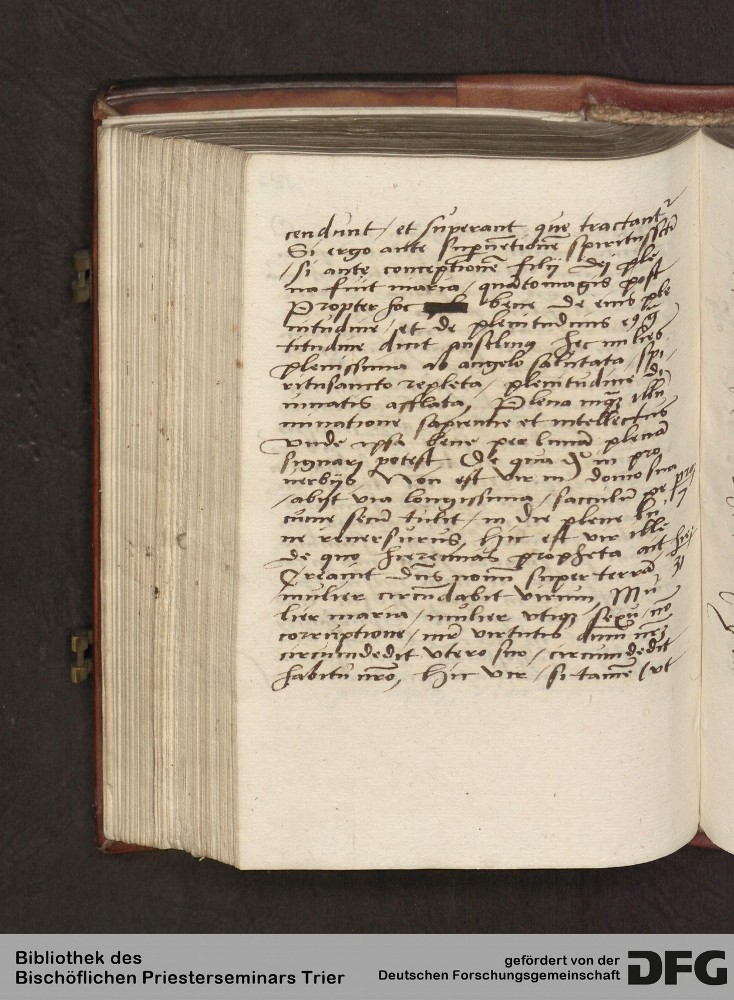 cendunt / et superant que tractant^r
Si ergo ante superuētionē spiritussctī
/ si ante conceptionē filij dei ple
na fuit maria / quātomagis post
Propter hoc bene de eius ple
nitudine / et de plenitudinis
titudine dicit anselmus hec mulier
plenissima ab angelo salutata / spi
ritusancto repleta / plenitudine di
uinatis afflata, Plena inq̄ʒ illu
minatione sapientie et intellectus
Vnde ipsa bene per lunā plenā
signari potest de qua in pro
uerbijs Non est vir in domo sua
/ abijt via longissima / sacculū pe
cunie secū tulit / in die plene lu
ne reuersurus, Hic est vir ille
de quo hieremias propheta ait
Creauit dn̄s nouū super terrā
mulier circūdabit virum, Mu
lier maria / mulier vtiqʒ sexu / nō
corruptione / virtutis
circumdedit vtero suo / circumdedit
habitu nr̄o, Hic vir / si tamē (vt
pro
hie
31
Bibliothek des
Bischöflichen Priesterseminars Trier
gefördert von der
Deutschen Forschungsgemeinschaft
DFG